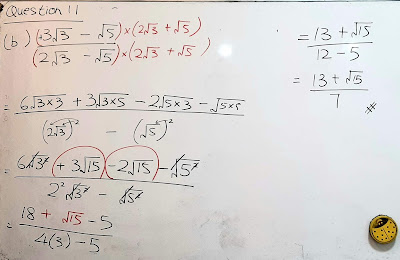 Question 11
(b) (3√3 - √5) × (2√3 + √5)
(2√3 - √5) × (2√3 + √5)
= 6√3×3 + 3√3×5 - 2√5×3 - √5×5
(2√3)² - (√5)²
= 6√3² + 3√15 - 2√15 - √5²
2²√3² - √5²
= 18 + √15 - 5
4(3) - 5
= 13 + √15
12 - 5
= 13 + √15
7